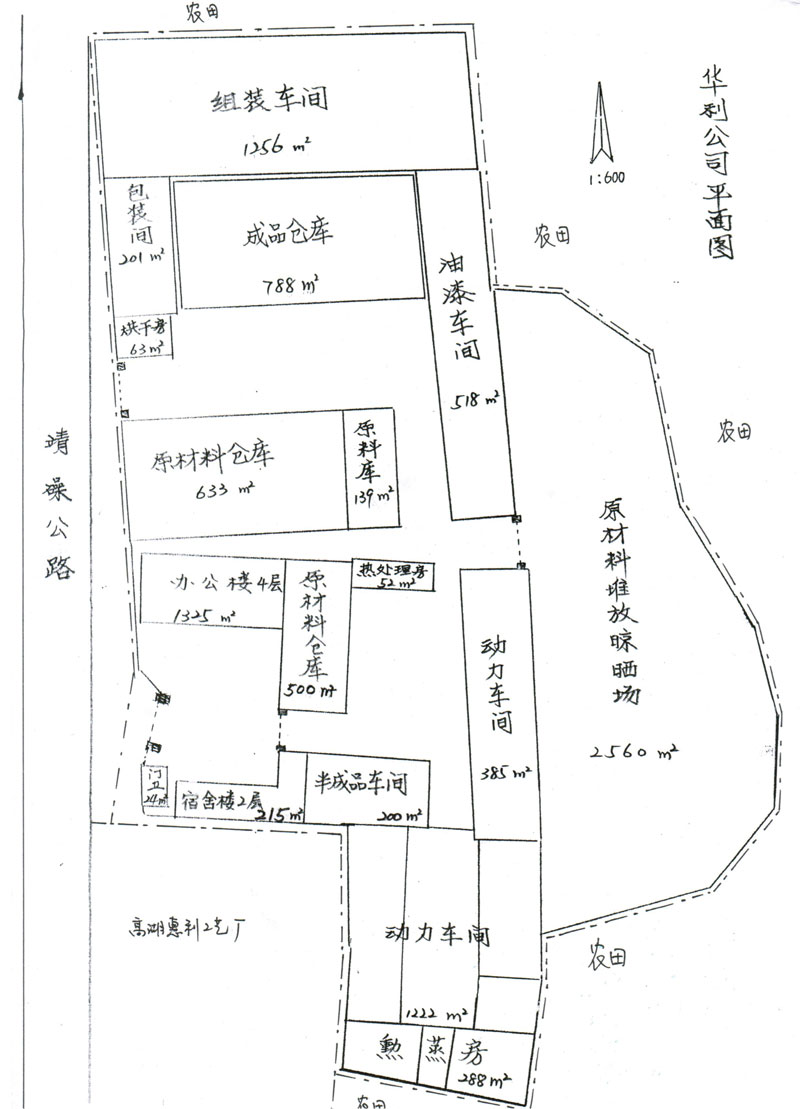 农田
华利公司平面图
1:600
组装车间
1256 m²
包装间
201 m²
成品仓库
788 m²
油漆车间
518 m²
农田
烘干房
63 m²
农田
靖澡公路
原材料仓库
633 m²
原料库
139 m²
原材料堆放晾晒场
2560 m²
办公楼4层
1325 m²
原材料仓库
500 m²
热处理房
52 m²
动力车间
385 m²
门卫
24 m²
宿舍楼2层
215 m²
半成品车间
200 m²
高湖惠利工艺厂
动力车间
1222 m²
农田
蒸房
288 m²
农田